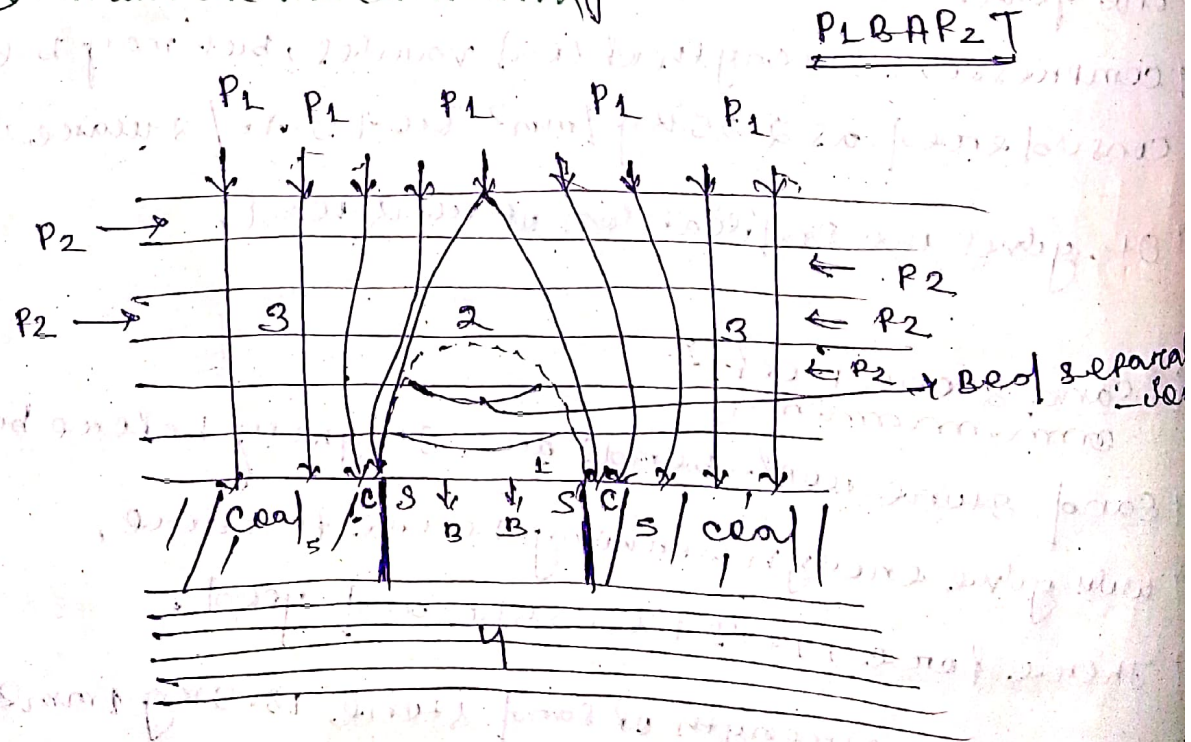 P1BAP2T
P1 P1 P1 P1 P1
P2
P2
P2 3 2 3 P2
P2 Bed separa
1
C S S C
coal s B B. s coal
4